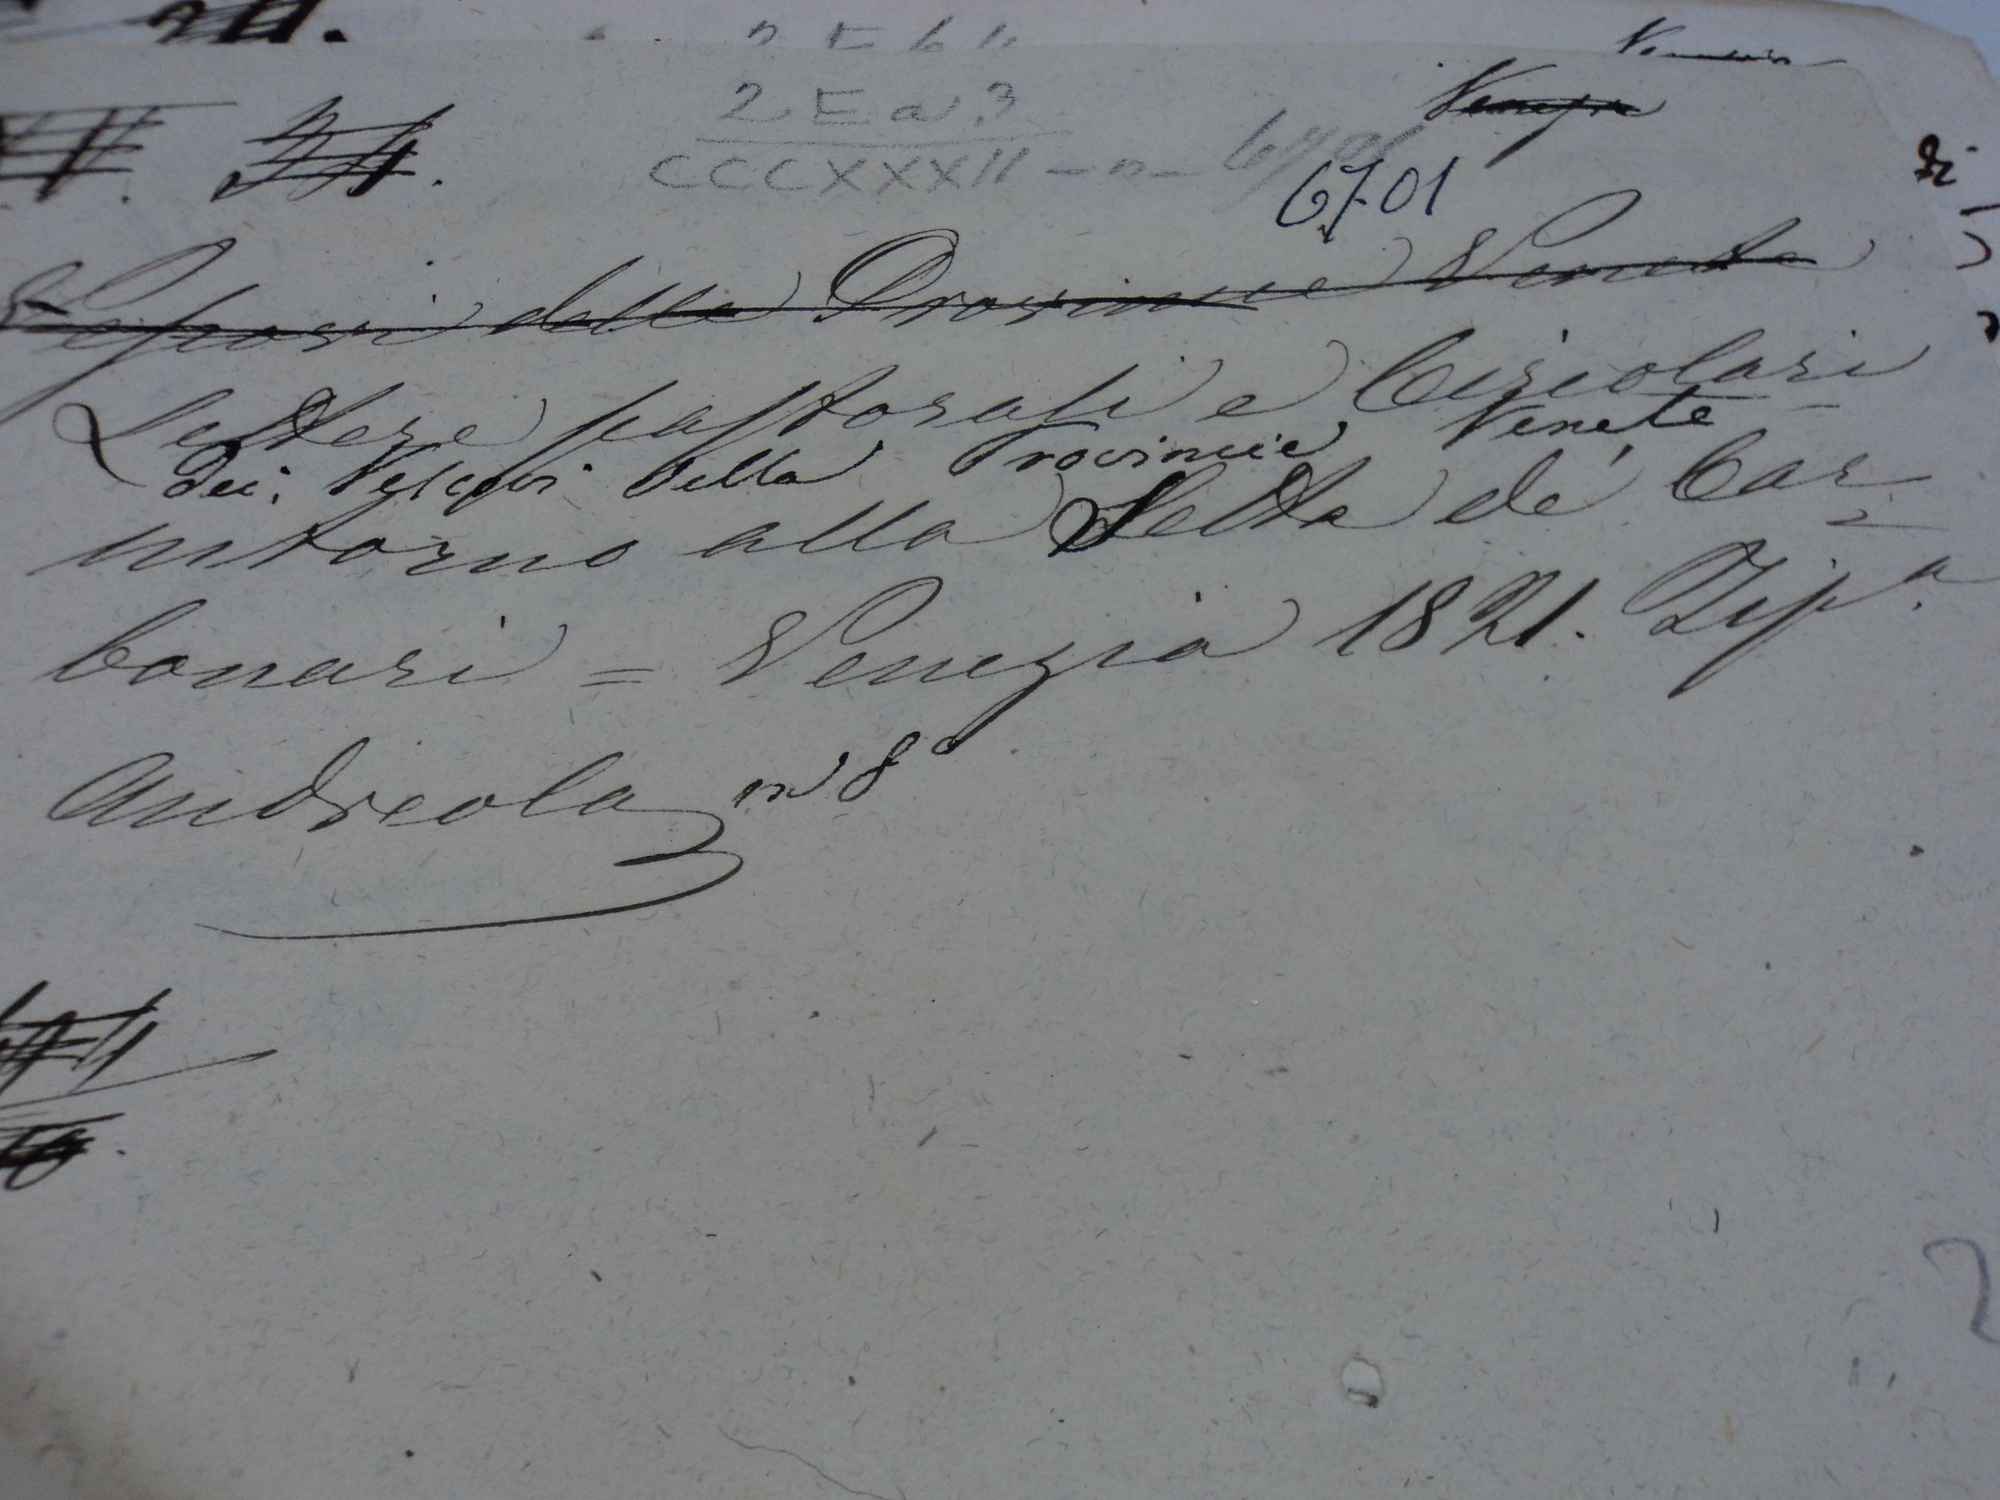 2 E a 3
CCCXXXII - n - 6701
Venezia
6701
Vescovi delle Provincie Venete
Lettere pastorali e Circolari
dei Vescovi della Provincie Venete
intorno alla Setta de' Car=
bonari = Venezia 1821. Tip.a
Andreola in 8°